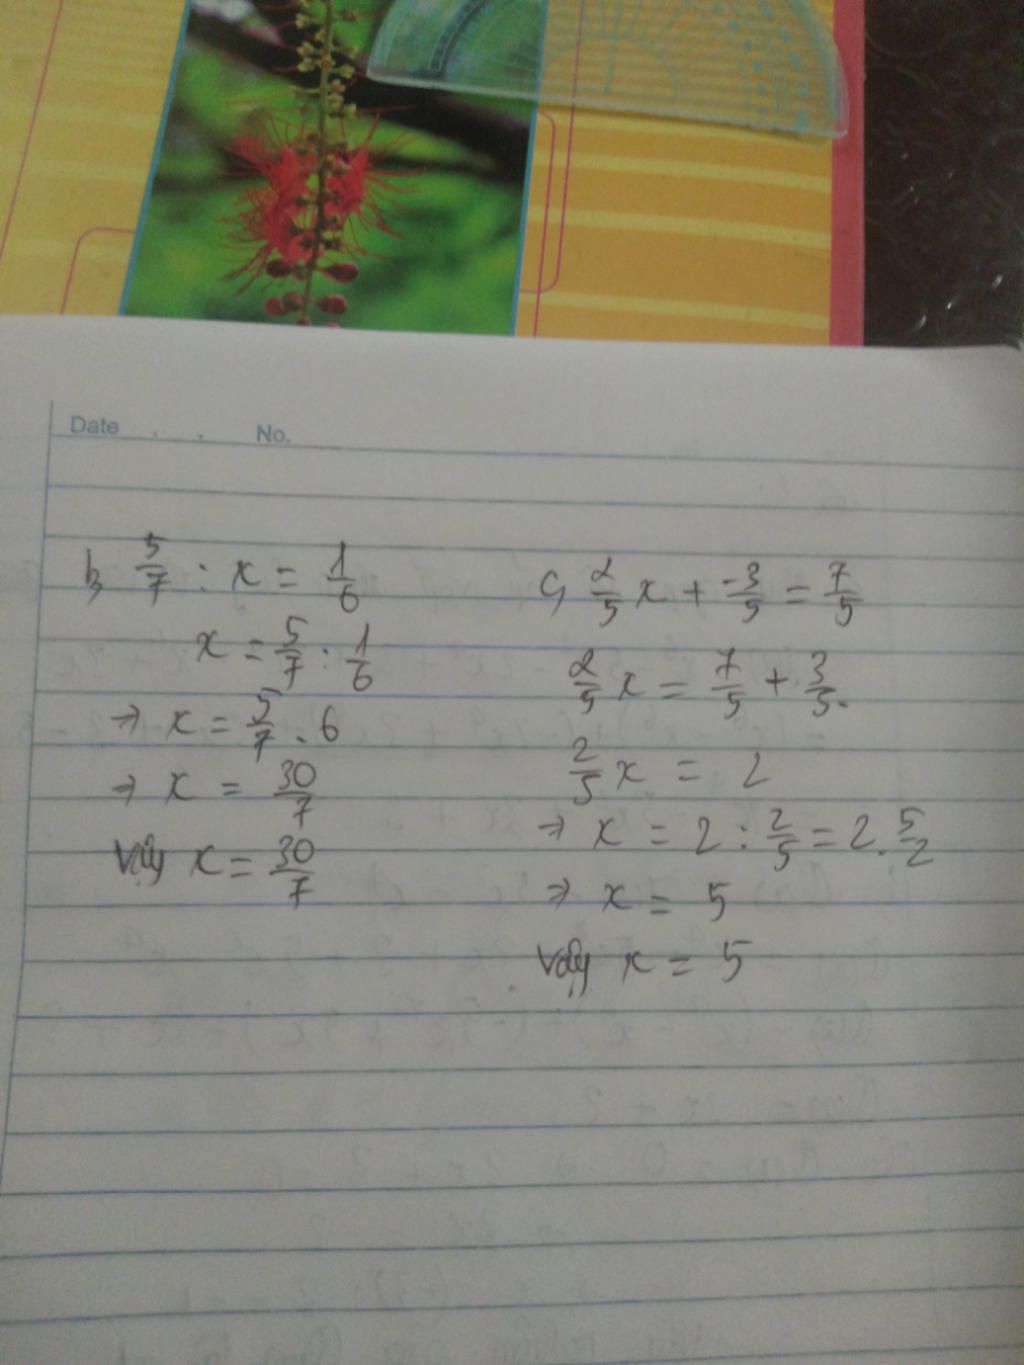 Date . . No.
b, 5/7 : x = 1/6
x = 5/7 : 1/6
⇒ x = 5/7 . 6
⇒ x = 30/7
Vậy x = 30/7
c, 2/5 x + -3/5 = 7/5
2/5 x = 7/5 + 3/5.
2/5 x = 2
⇒ x = 2 : 2/5 = 2 . 5/2
⇒ x = 5
Vậy x = 5